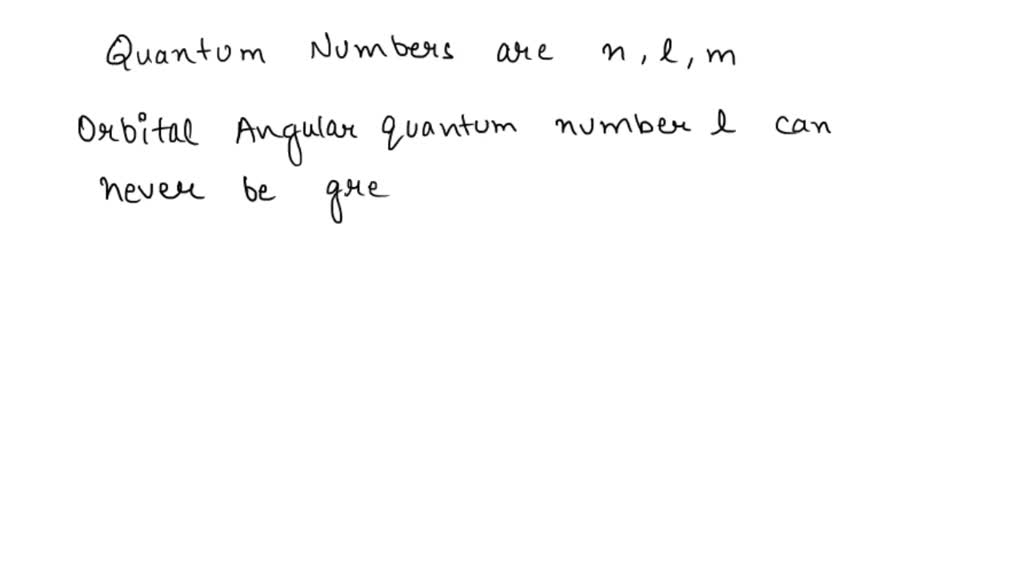 Quantum Numbers are n, l, m
Orbital Angular quantum number l can
never be gre